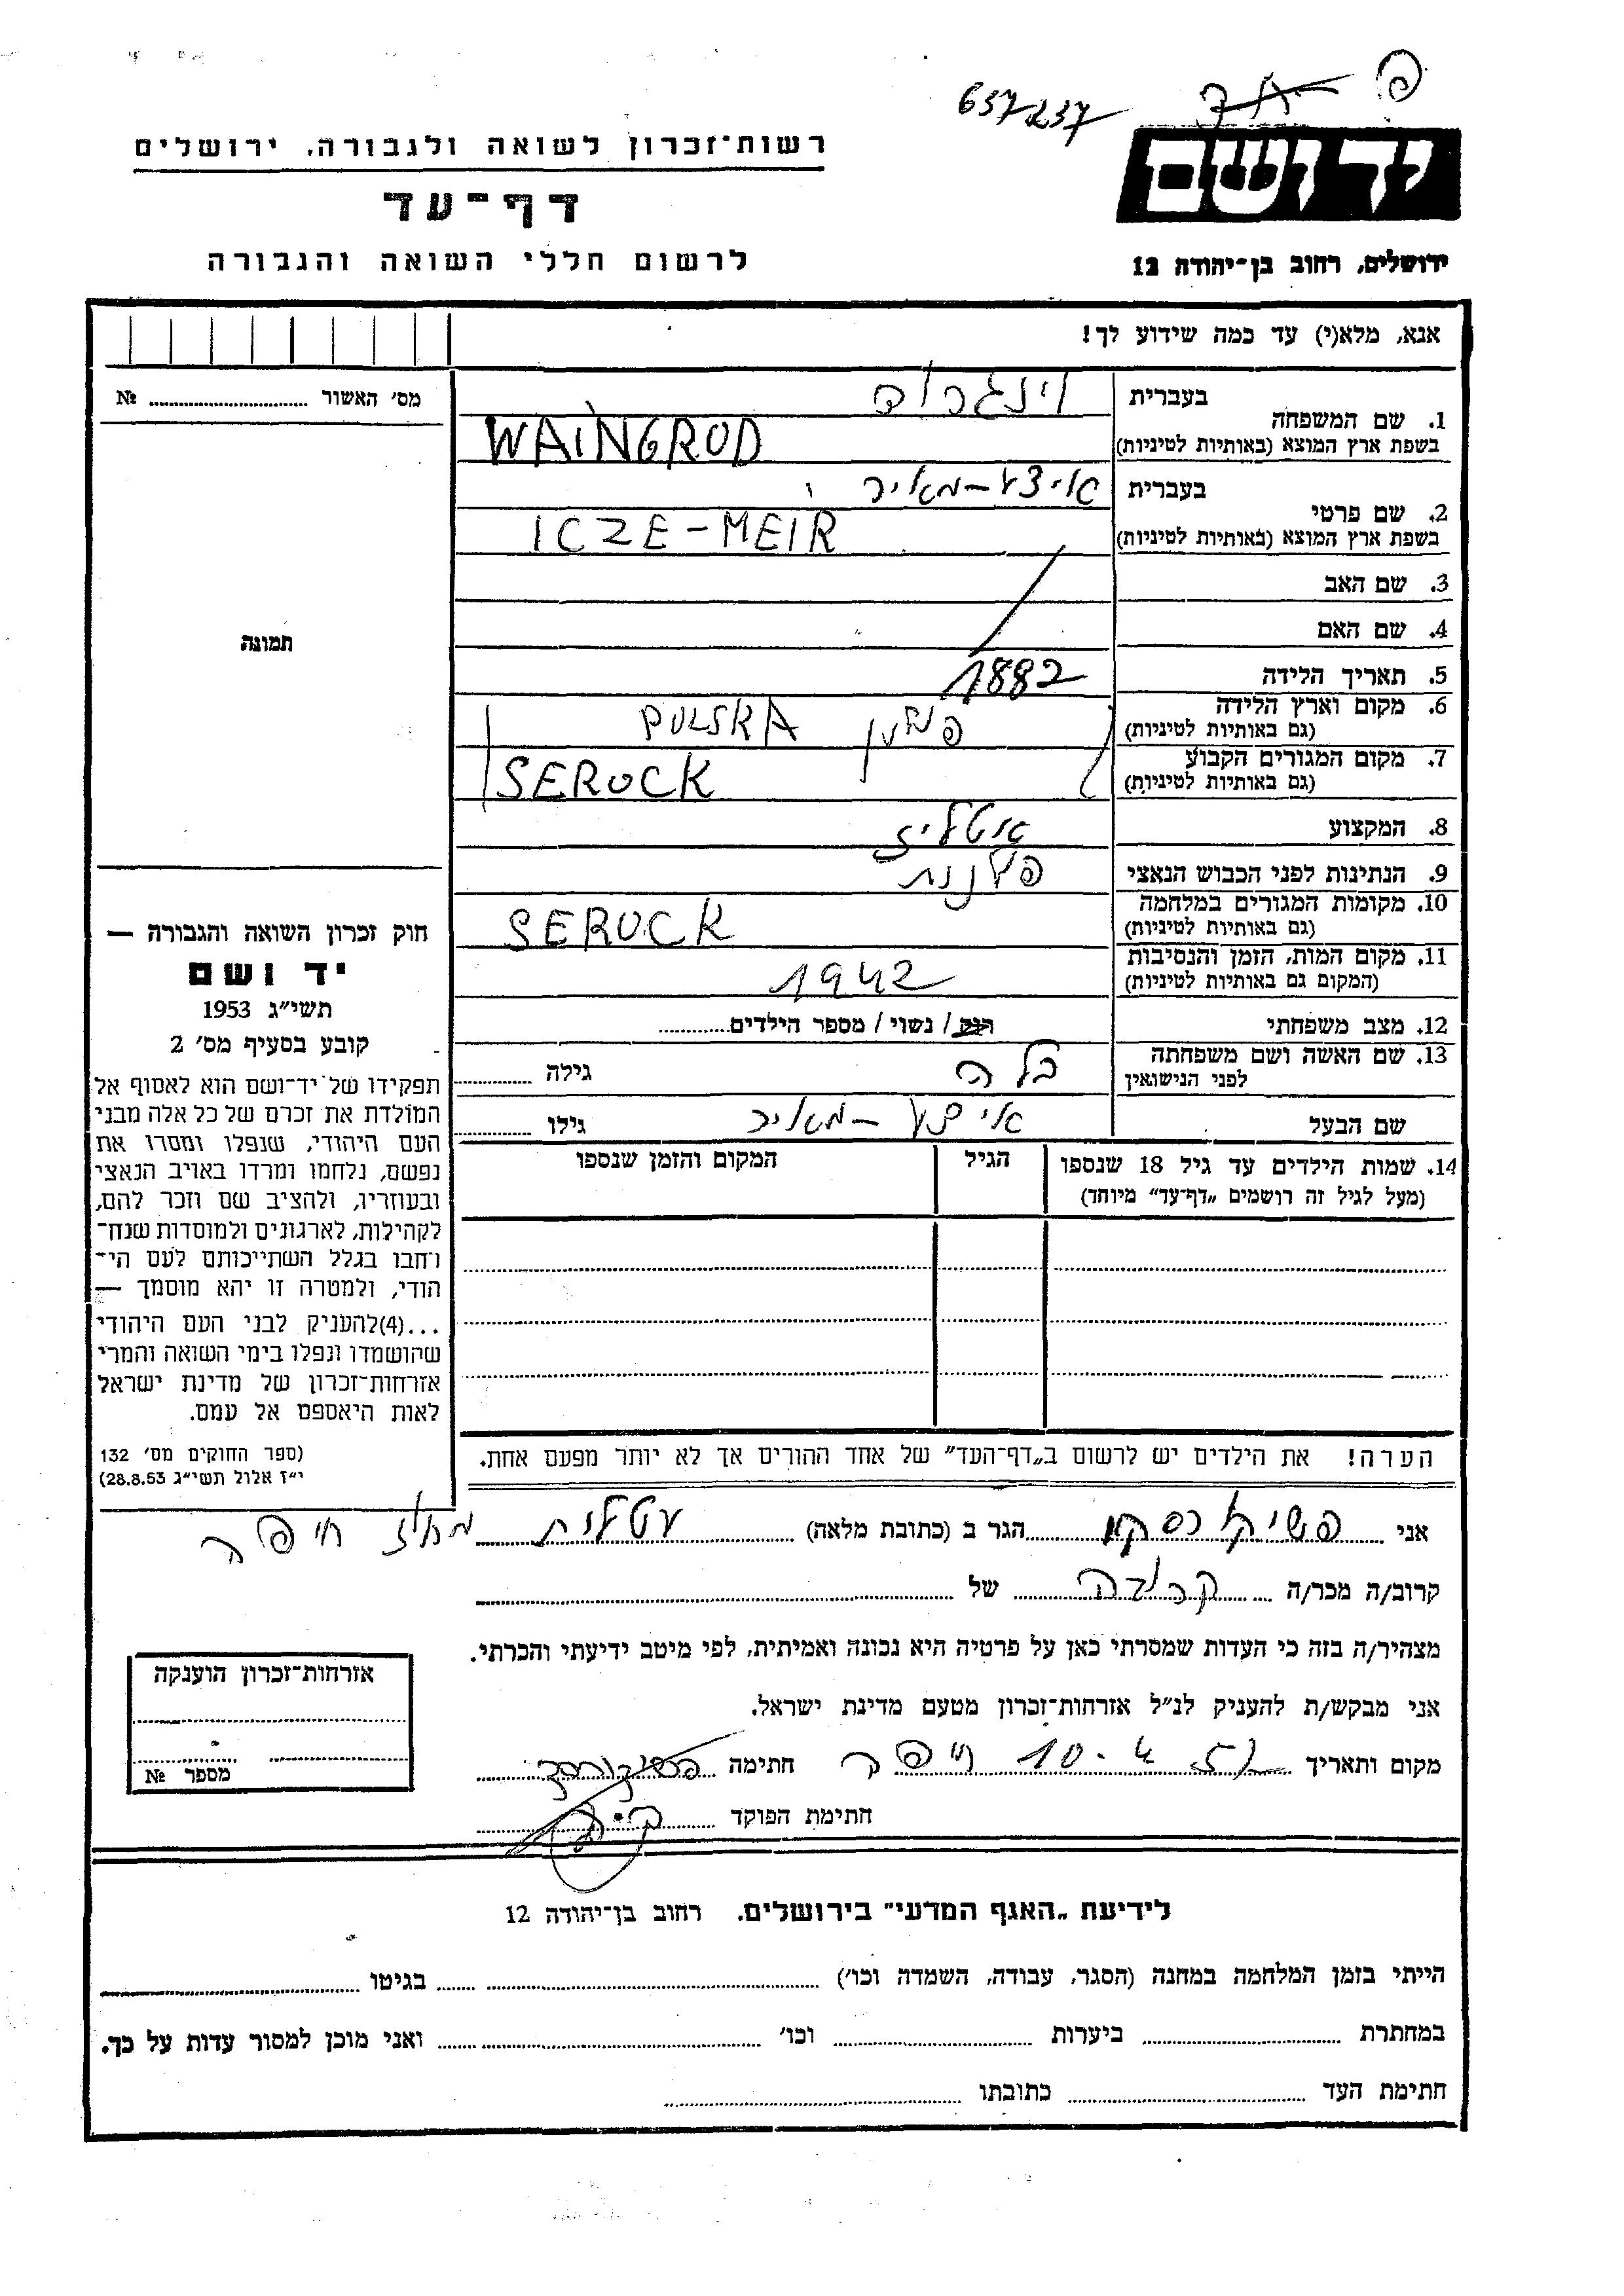 637237
רשות־זכרון לשואה ולגבורה. ירושלים
דף־עד
לרשום חללי השואה והגבורה
יד ושם
ירושלים, רחוב בן־יהודה 12
אנא, מלא(י) עד כמה שידוע לך!
מס׳ האשור № 
1. שם המשפחה
בעברית וינגרוד
בשפת ארץ המוצא (באותיות לטיניות) WAINGROD
2. שם פרטי
בעברית איצע-מאיר
בשפת ארץ המוצא (באותיות לטיניות) ICZE-MEIR
3. שם האב
4. שם האם
5. תאריך הלידה 1882
6. מקום וארץ הלידה PULSKA
(גם באותיות לטיניות)
7. מקום המגורים הקבוע SEROCK
(גם באותיות לטיניות)
8. המקצוע אטליז
9. הנתינות לפני הכבוש הנאצי
10. מקומות המגורים במלחמה SEROCK
(גם באותיות לטיניות)
11. מקום המות, הזמן והנסיבות 1942
(המקום גם באותיות לטיניות)
12. מצב משפחתי רוק / נשוי / מספר הילדים
13. שם האשה ושם משפחתה בלה גילה
לפני הנישואין
שם הבעל מאיר גילו
14. שמות הילדים עד גיל 18 שנספו הגיל המקום והזמן שנספו
(מעל לגיל זה רושמים „דף־עד״ מיוחד)
הערה! את הילדים יש לרשום ב„דף־העד״ של אחד ההורים אך לא יותר מפעם אחת.
תמונה
חוק זכרון השואה והגבורה —
יד ושם
תשי״ג 1953
קובע בסעיף מס׳ 2
תפקידו של יד־ושם הוא לאסוף אל
המולדת את זכרם של כל אלה מבני
העם היהודי, שנפלו ומסרו את
נפשם, נלחמו ומרדו באויב הנאצי
ובעוזריו, ולהציב שם וזכר להם,
לקהילות, לארגונים ולמוסדות שנח־
רחבו בגלל השתייכותם לעם הי־
הודי, ולמטרה זו יהא מוסמך —
...(4)להעניק לבני העם היהודי
שהושמדו ונפלו בימי השואה והמרי
אזרחות־זכרון של מדינת ישראל
לאות היאספם אל עמם.
(ספר החוקים מס׳ 132
י״ז אלול תשי״ג 28.8.53)
אני הגר ב (כתובת מלאה) עטלית חיפה
קרוב/ה מכר/ה קרובה של
מצהיר/ה בזה כי העדות שמסרתי כאן על פרטיה היא נכונה ואמיתית, לפי מיטב ידיעתי והכרתי.
אני מבקש/ת להעניק לנ״ל אזרחות־זכרון מטעם מדינת ישראל.
מקום ותאריך חיפה 10.4 חתימה
חתימת הפוקד
אזרחות־זכרון הוענקה
מספר №
לידיעת „האגף המדעי״ בירושלים. רחוב בן־יהודה 12
הייתי בזמן המלחמה במחנה (הסגר, עבודה, השמדה וכו׳) בגיטו
במחתרת ביערות וכו׳ ואני מוכן למסור עדות על כך.
חתימת העד כתובתו